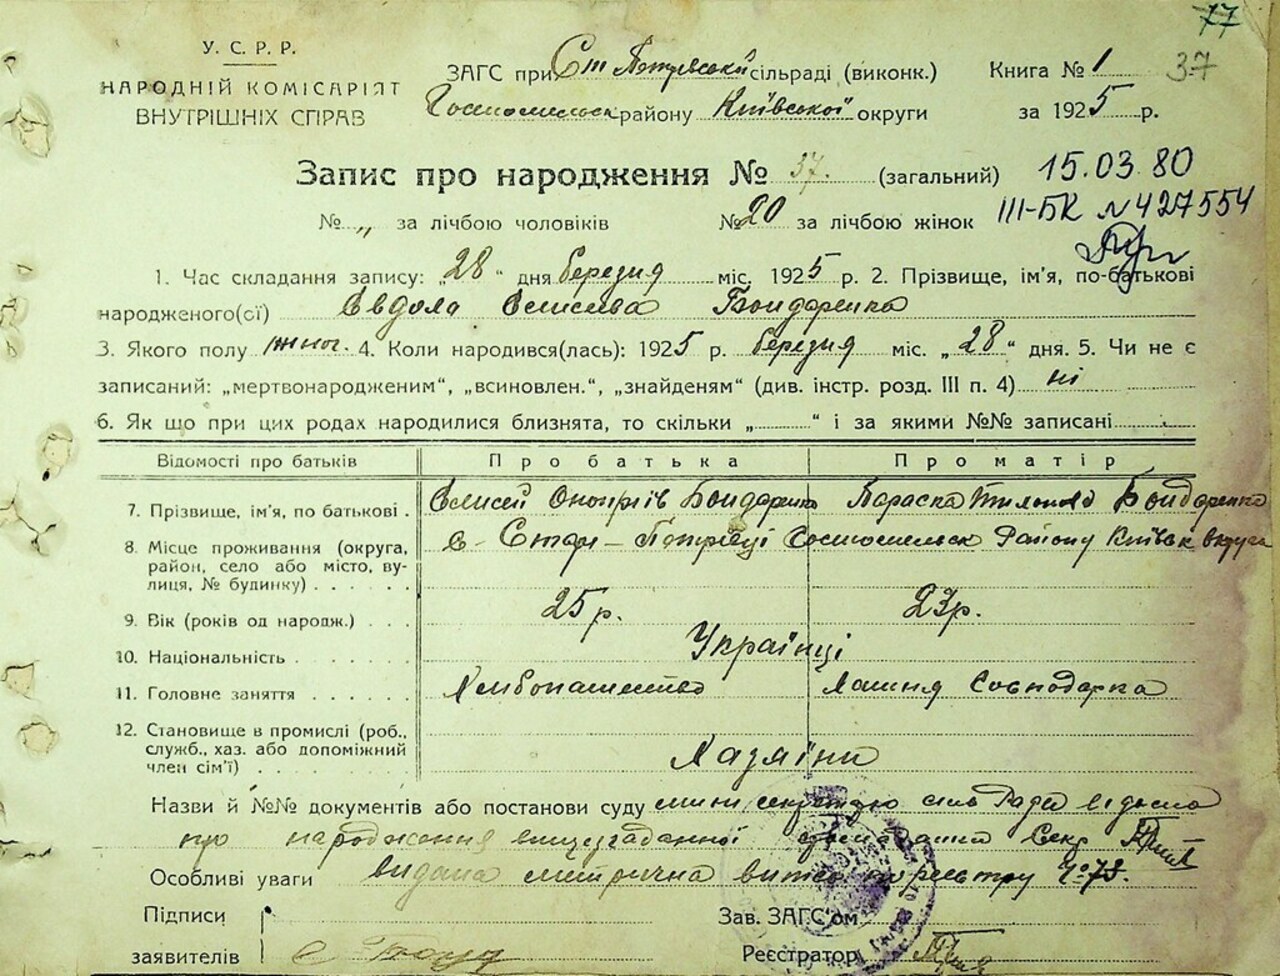 77
37
У. С. Р. Р.
НАРОДНІЙ КОМІСАРІЯТ
ВНУТРІШНІХ СПРАВ
ЗАГС при Ст Петрівській сільраді (виконк.)
району Київської округи
Книга № 1
за 1925 р.
Запис про народження № 37. (загальний)
15.03.80
III-БК № 427554
№ „ за лічбою чоловіків №20 за лічбою жінок
1. Час складання запису: „28" дня березня міс. 1925 р. 2. Прізвище, ім'я, по-батькові
народженого(ої) Бондаренко
3. Якого полу жіноч. 4. Коли народився(лась): 1925 р. березня міс. „28" дня. 5. Чи не є
записаний: „мертвонародженим", „всиновлен.", „знайденям" (див. інстр. розд. III п. 4) ні
6. Як що при цих родах народилися близнята, то скільки „ " і за якими №№ записані
Відомості про батьків Про батька Про матір
7. Прізвище, ім'я, по батькові . Єлисей Онопріїв Бондаренко Параска Бондаренко
8. Місце проживання (округа, район, село або місто, вулиця, № будинку) с. Стар-Петрівці Району Київськ округа
9. Вік (років од народж.) 25 р. 23 р.
10. Національність Українці
11. Головне заняття Хлібопашество
12. Становище в промислі (роб., служб., хаз. або допоміжний член сім'ї) Хазяїни
Назви й №№ документів або постанови суду
про народження вищезгаданної Секр
Особливі уваги видана метрична по реєстру № 73.
Підписи
заявителів
Зав. ЗАГС'ом
Реєстратор